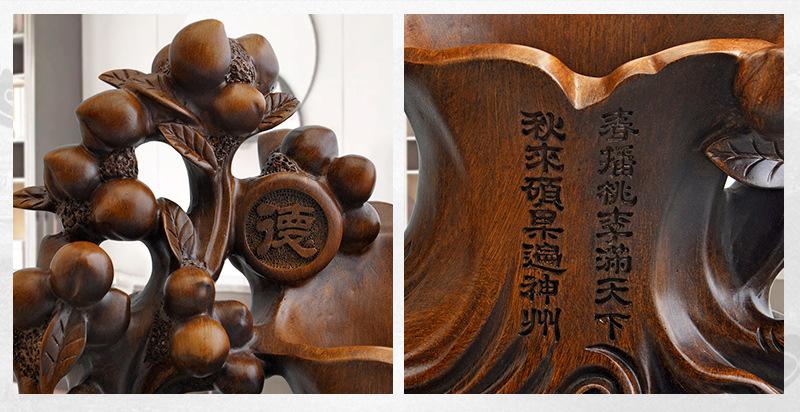 德
春播桃李满天下
秋来硕果遍神州